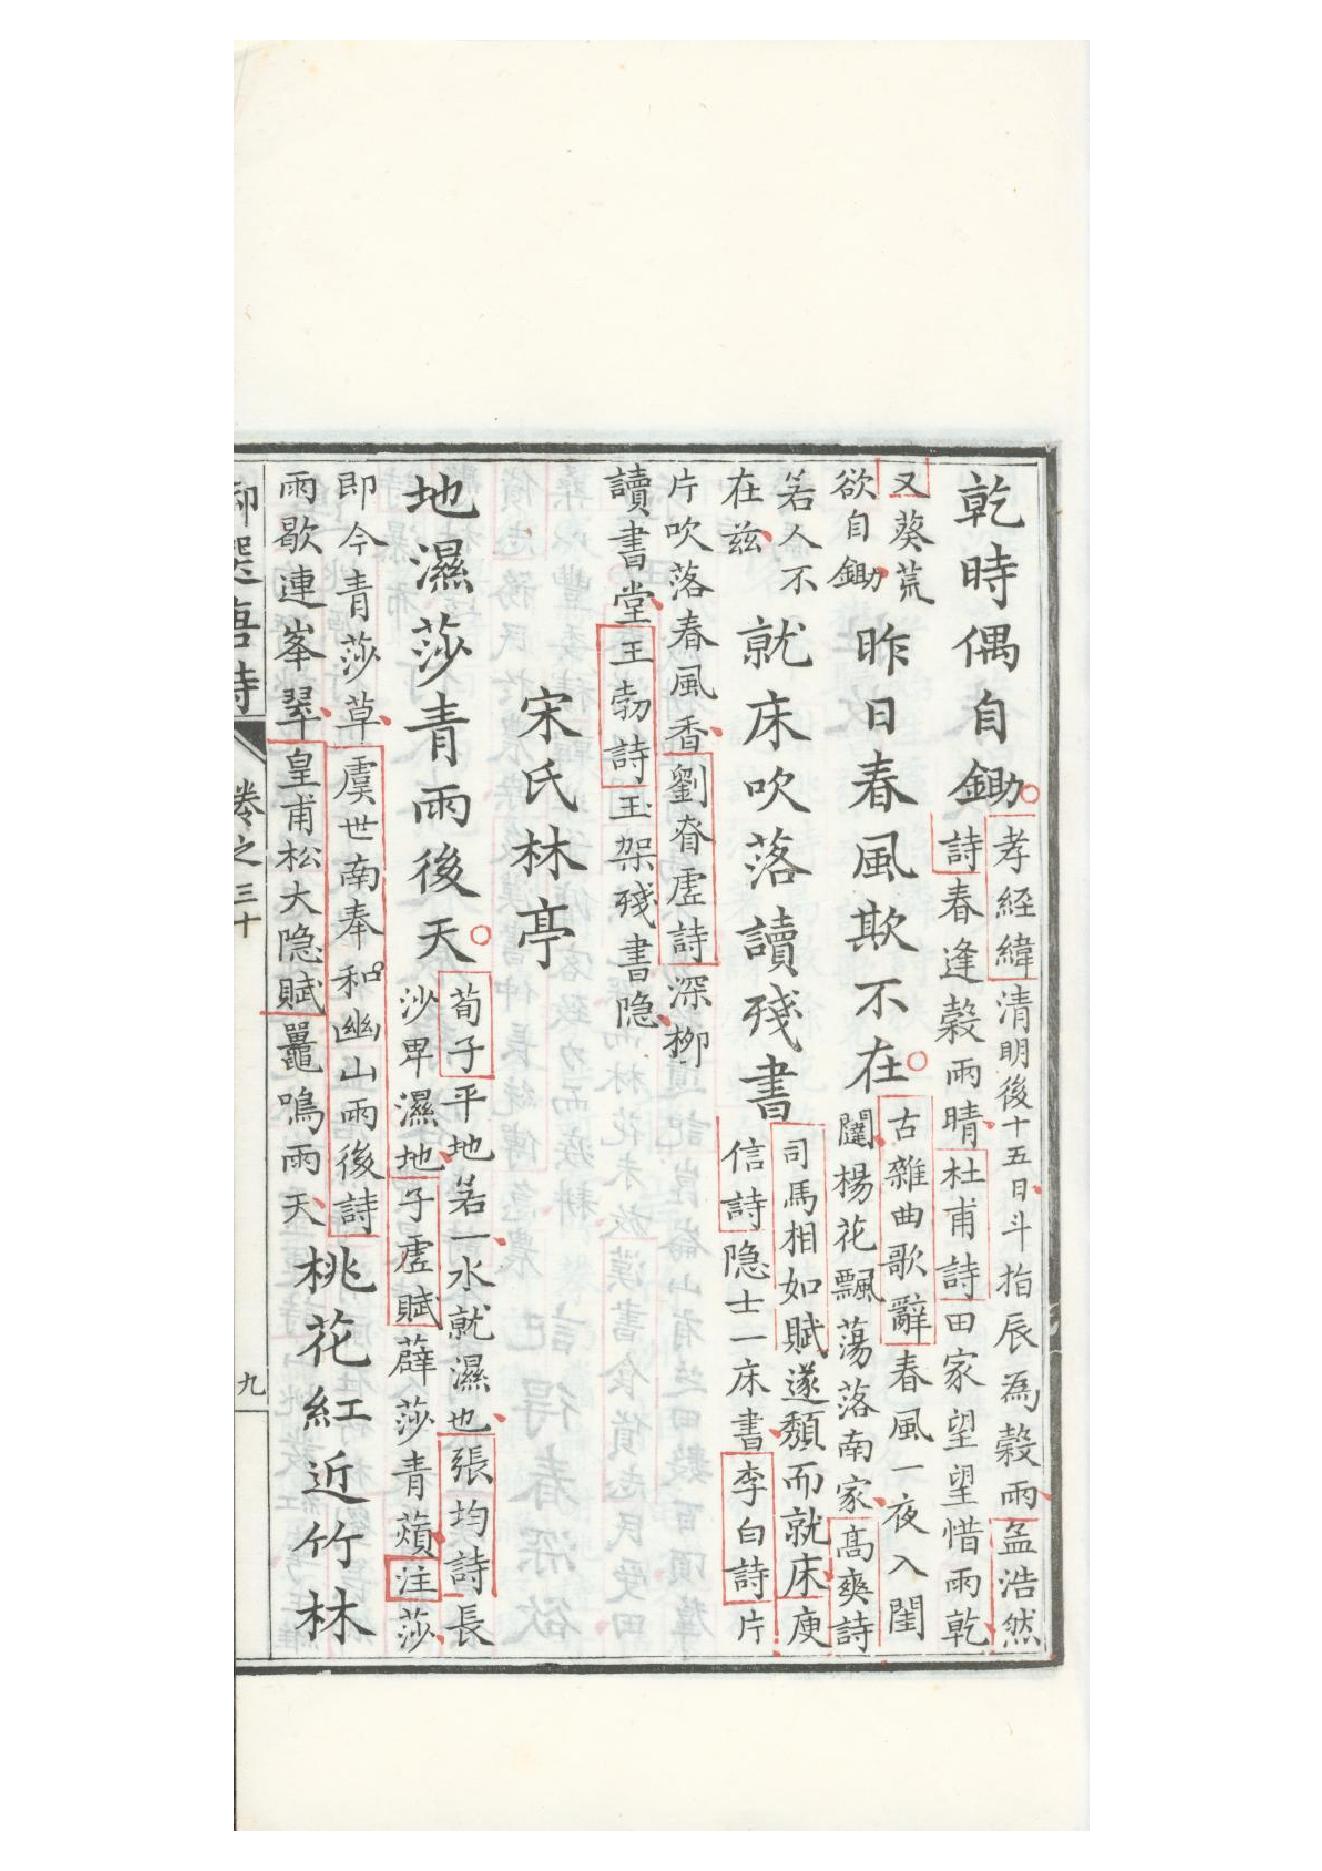 乾時偶自鋤
孝經緯清明後十五日斗指辰為穀雨孟浩然
詩春逢穀雨晴杜甫詩田家望望惜雨乾
又葵荒
欲自鋤
昨日春風欺不在
古雜曲歌辭春風一夜入閨
闥楊花飄蕩落南家高爽詩
若人不
在茲
就床吹落讀殘書
司馬相如賦遂頹而就床庾
信詩隐士一床書李白詩片
片吹落春風香劉眘虛詩深柳
讀書堂王勃詩玉架殘書隐
宋氏林亭
地濕莎青雨後天
荀子平地若一水就濕也張均詩長
沙卑濕地子虛賦薜莎青薠注莎
即今青莎草虞世南奉和幽山雨後詩
雨歇連峯翠皇甫松大隐賦鼉鳴雨天
桃花紅近竹林
御選唐詩
卷之三十
九